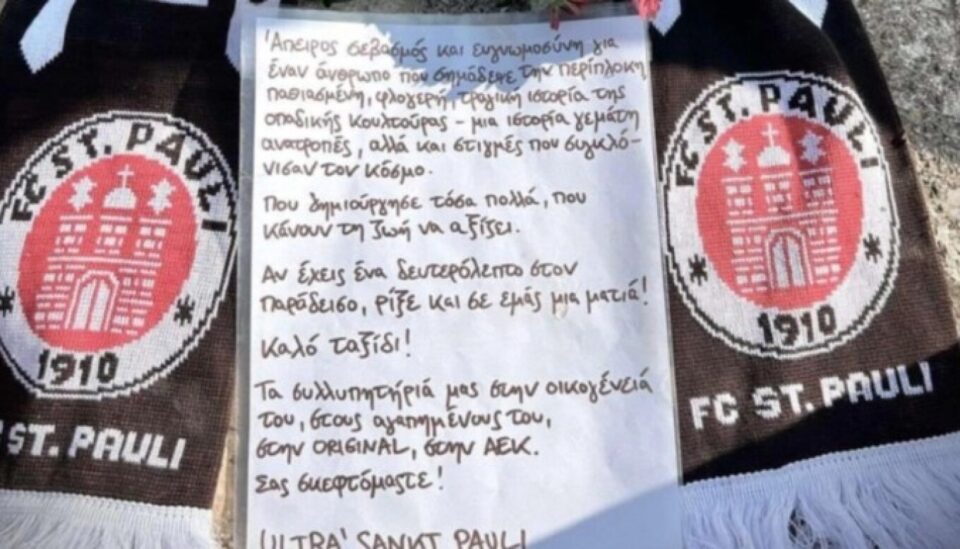 FC ST. PAULI
1910
ST. PAULI
Άπειρος σεβασμός και ευγνωμοσύνη για
έναν άνθρωπο που σημάδεψε την περίπλοκη
παθιασμένη, φλογερή, τραγική ιστορία της
οπαδικής κουλτούρας - μια ιστορία γεμάτη
ανατροπές, αλλά και στιγμές που συγκλό-
νισαν τον κόσμο.
Που δημιούργησε τόσα πολλά, που
κάνουν τη ζωή να αξίζει.
Αν έχεις ένα δευτερόλεπτο στον
παράδεισο, ρίξε και σε εμάς μια ματιά!
Καλό ταξίδι!
Τα συλλυπητήριά μας στην οικογένειά
του, στους αγαπημένους του,
στην ORIGINAL, στην ΑΕΚ.
Σας σκεφτόμαστε!
ULTRA' SANKT PAULI
FC ST. PAULI
1910
FC ST. PAULI